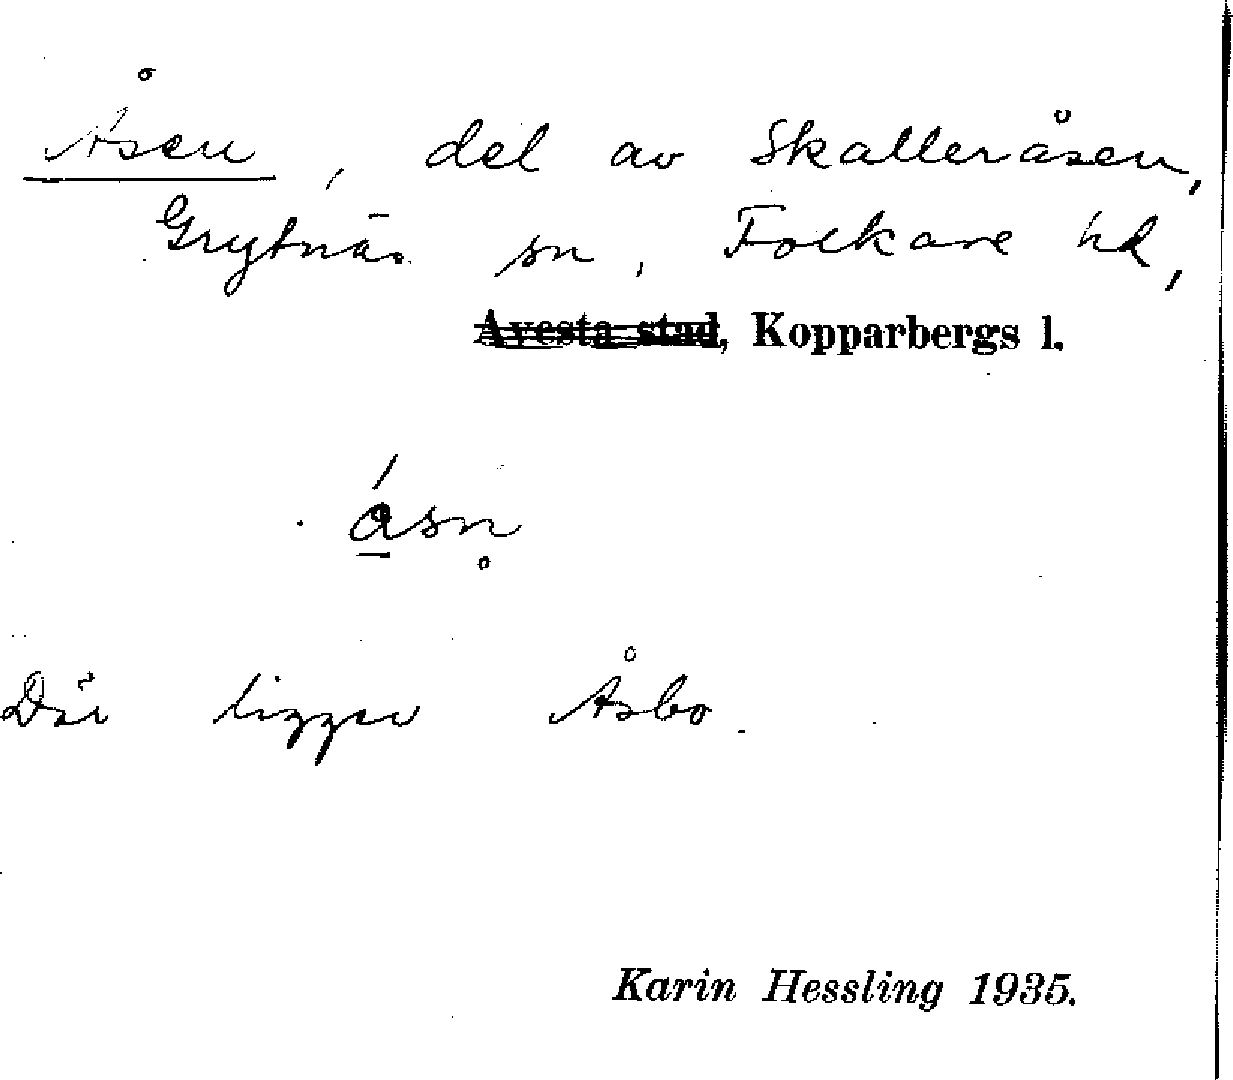 Åsen, del av Skalleråsen,
Grytnäs sn, Folkare hd,
Avesta stad, Kopparbergs l.
åsn̥
Där ligger Åsbo.
Karin Hessling 1935.